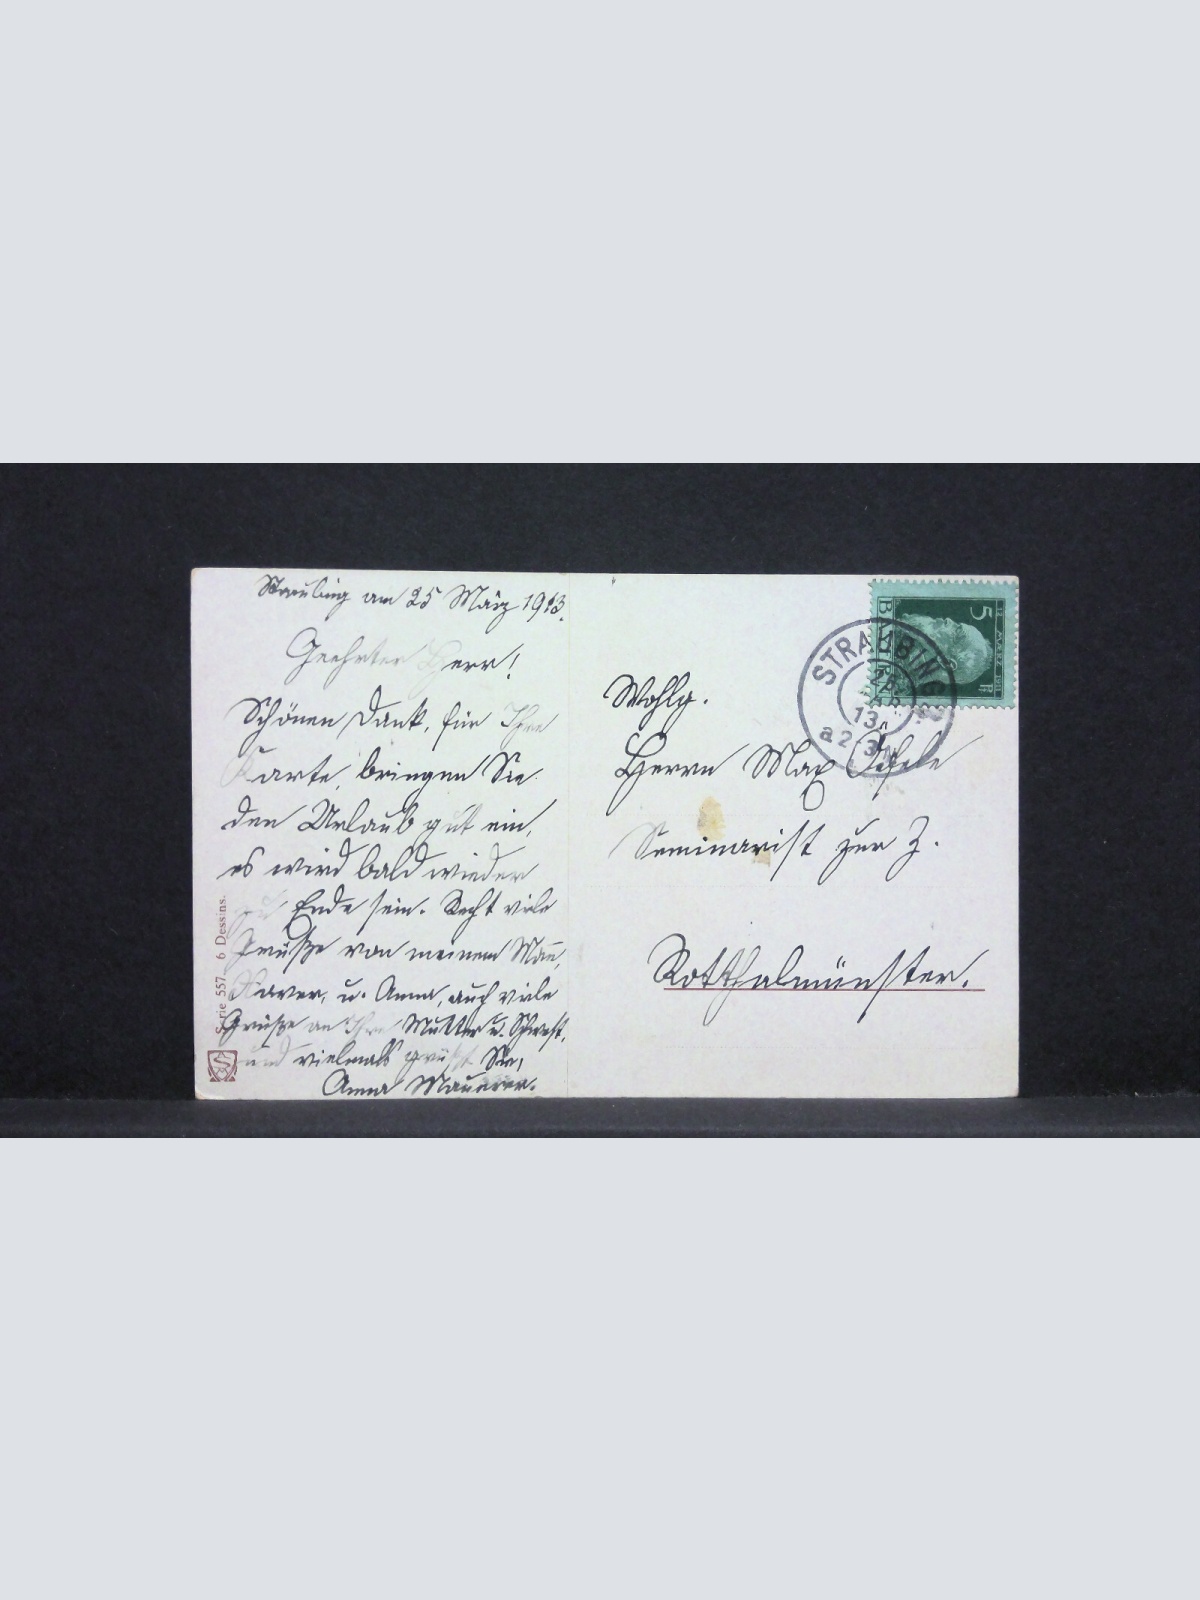 Straubing am 25 März 1913.
Geehrter Herr!
Schönen Dank, für Ihre
Karte, bringen Sie
den Urlaub gut ein,
es wird bald wieder
zu Ende sein. Recht viele
Grüße von meinem Mann,
Xaver, u. Anna, auch viele
Grüße an Ihre Mutter u. Schwest.
und vielmals grüßt Sie,
Anna Mauerer.
Serie 557 6 Dessins.
Wohlg.
Herrn Max
Seminarist zur Z.
Rotthalmünster.
STRAUBING
13
a 2
5
12. MÄRZ 1911